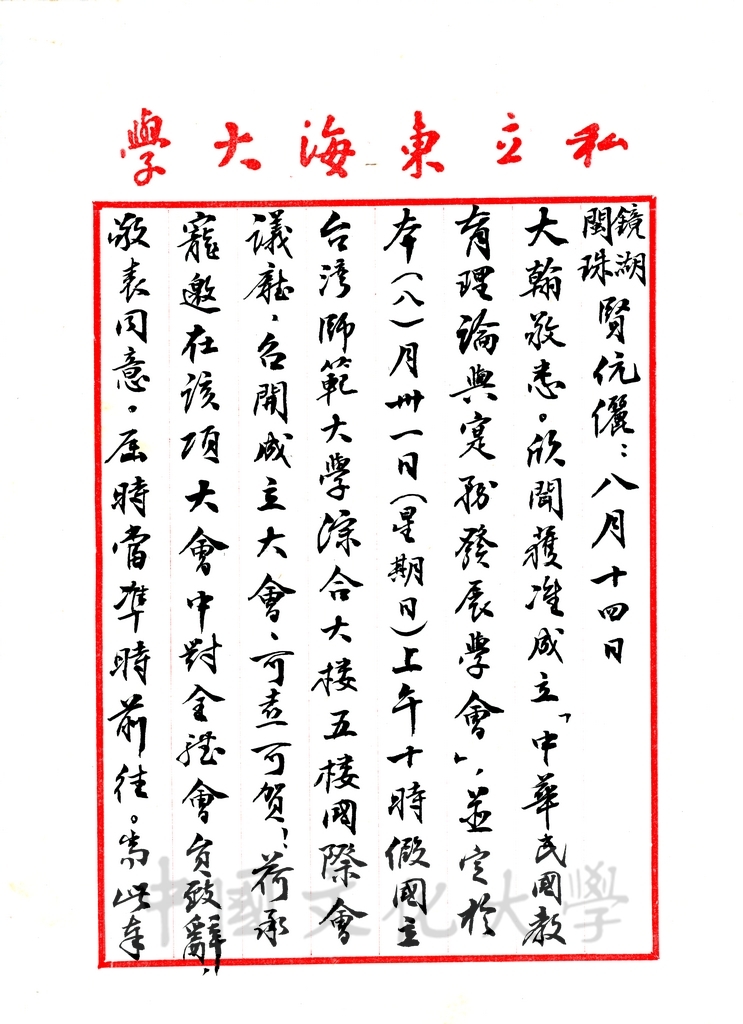 私立東海大學
鏡湖
閩珠賢伉儷：八月十四日
大翰敬悉。欣聞獲准成立「中華民國教
育理論與實務發展學會」，並定於
本（八）月卅一日（星期日）上午十時假國立
台灣師範大學綜合大樓五樓國際會
議廳，召開成立大會，可喜可賀！荷承
寵邀在該項大會中對全體會員致辭，
敬表同意，屆時當準時前往。耑此奉
中國文化大學